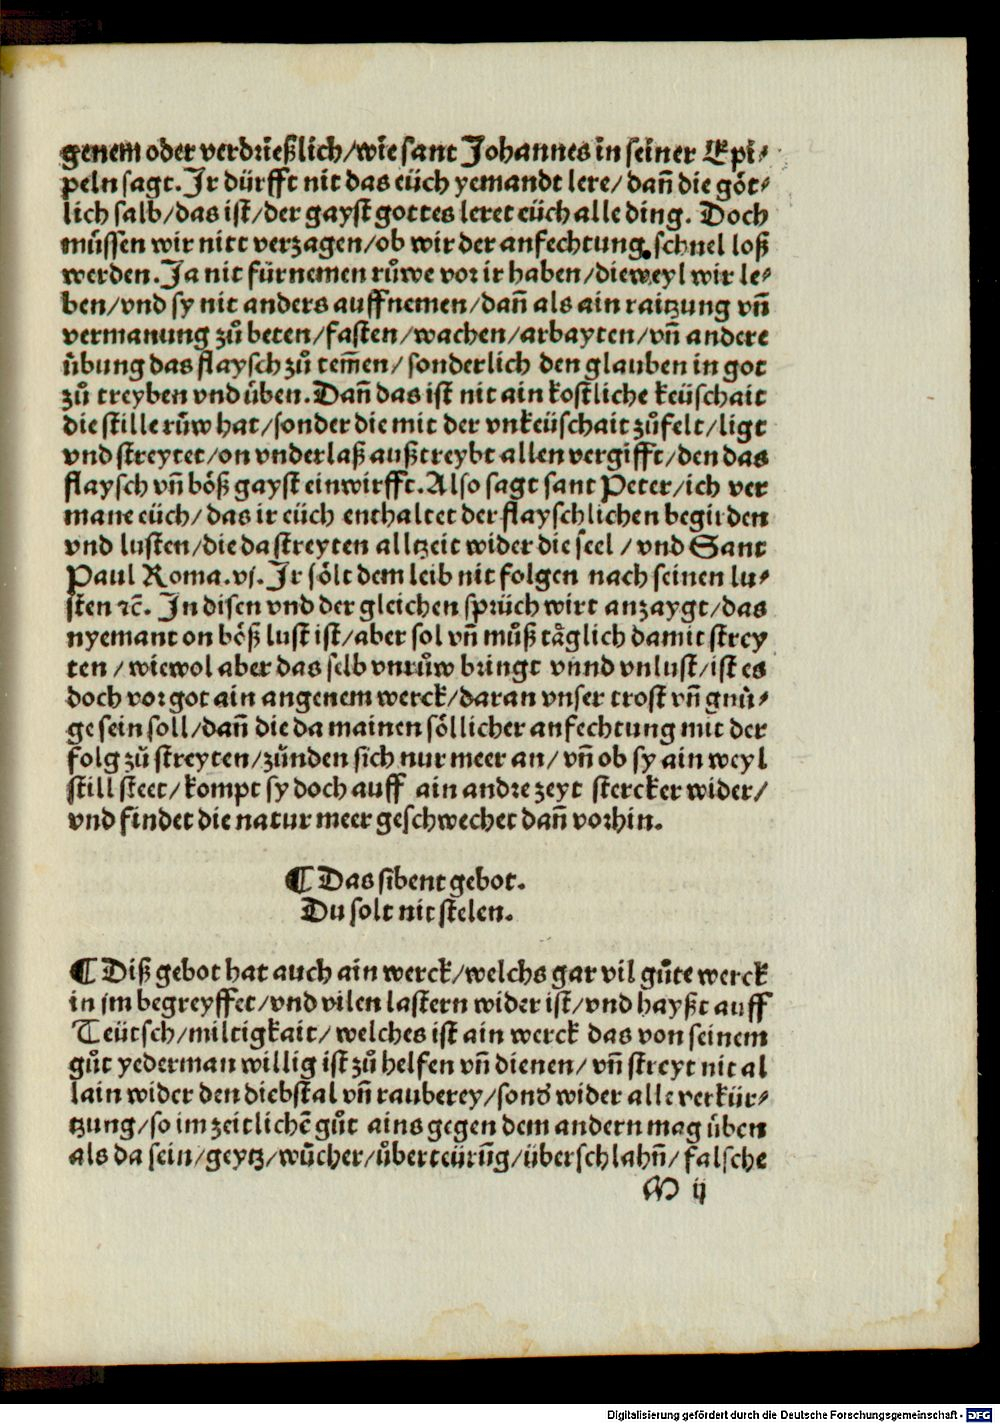 genem oder verdrießlich/wie sant Johannes in seiner Epi⸗
peln sagt. Jr dürfft nit das eüch yemandt lere/dañ die göt⸗
lich salb/das ist/der gayst gottes leret eüch alle ding. Doch
müssen wir nitt verzagen/ob wir der anfechtung schnel loß
werden. Ja nit fürnemen růwe vor ir haben/dieweyl wir le⸗
ben/vnd sy nit anders auffnemen/dañ als ain raitzung vñ
vermanung zů beten/fasten/wachen/arbayten/vñ andere
übung das flaysch zů tem̃en/sonderlich den glauben in got
zů treyben vnd üben. Dañ das ist nit ain kostliche keüschait
die stille růw hat/sonder die mit der vnkeüschait zůfelt/ligt
vnd streytet/on vnderlaß außtreybt allen vergifft/den das
flaysch vñ böß gayst einwirfft. Also sagt sant Peter/ich ver
mane eüch/das ir eüch enthaltet der flayschlichen begirden
vnd lusten/die da streyten alltzeit wider die seel/vnd Sant
Paul Roma.vj. Jr sölt dem leib nit folgen nach seinen lu⸗
sten ꝛc̃. Jn disen vnd der gleichen sprüch wirt anzaygt/das
nyemant on böß lust ist/aber sol vñ můß täglich damit strey
ten/wiewol aber das selb vnrůw bringt vnnd vnlust/ist es
doch vor got ain angenem werck/daran vnser trost vñ gnů⸗
ge sein soll/dañ die da mainen söllicher anfechtung mit der
folg zů streyten/zünden sich nur meer an/vñ ob sy ain weyl
still steet/kompt sy doch auff ain andre zeyt stercker wider/
vnd findet die natur meer geschwechet dañ vorhin.
¶ Das sibent gebot.
Du solt nit stelen.
¶ Diß gebot hat auch ain werck/welchs gar vil gůte werck
in jm begreyffet/vnd vilen lastern wider ist/vnd hayßt auff
Teütsch/miltigkait/welches ist ain werck das von seinem
gůt yederman willig ist zů helfen vñ dienen/vñ streyt nit al
lain wider den diebstal vñ rauberey/sonđ wider alle verkür⸗
tzung/so im zeitlichẽ gůt ains gegen dem andern mag üben
als da sein/geytz/wůcher/überteürũg/überschlahñ/falsche
M ij
Digitalisierung gefördert durch die Deutsche Forschungsgemeinschaft - DFG